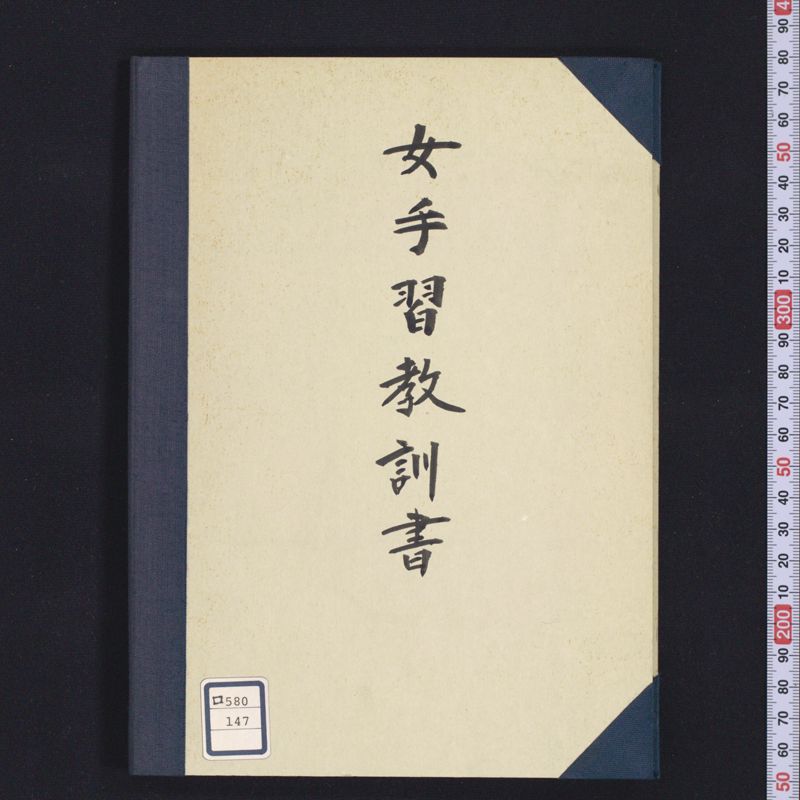 女手習教訓書
ロ580
147
40
90
80
70
60
50
40
30
20
10
300
90
80
70
60
50
40
30
20
10
200
90
80
70
60
50